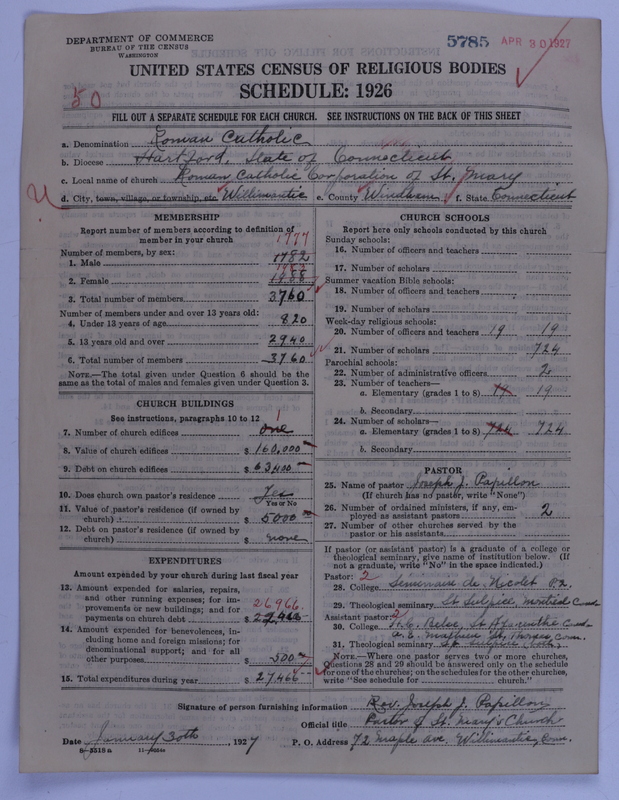 DEPARTMENT OF COMMERCE
BUREAU OF THE CENSUS
WASHINGTON
5785 APR 30 1927
UNITED STATES CENSUS OF RELIGIOUS BODIES
SCHEDULE: 1926
50
FILL OUT A SEPARATE SCHEDULE FOR EACH CHURCH. SEE INSTRUCTIONS ON THE BACK OF THIS SHEET
a. Denomination Roman Catholic
b. Diocese Hartford, State of Connecticut
c. Local name of church Roman Catholic Corporation of St. Mary
d. City, town, village, or township, etc. Willimantic e. County Windham f. State Connecticut
MEMBERSHIP
Report number of members according to definition of
member in your church
Number of members, by sex: 1777
1. Male 1782
2. Female
3. Total number of members 3760
Number of members under and over 13 years old:
4. Under 13 years of age 820
5. 13 years old and over 2940
6. Total number of members 3760
NOTE.—The total given under Question 6 should be the
same as the total of males and females given under Question 3.
CHURCH BUILDINGS
See instructions, paragraphs 10 to 12
7. Number of church edifices one 1
8. Value of church edifices $ 160,000
9. Debt on church edifices $ 63,400
10. Does church own pastor's residence Yes
Yes or No
11. Value of pastor's residence (if owned by
church) $ 5000
12. Debt on pastor's residence (if owned by
church) $ none
EXPENDITURES
Amount expended by your church during last fiscal year
13. Amount expended for salaries, repairs,
and other running expenses; for im-
provements or new buildings; and for 26966
payments on church debt $
14. Amount expended for benevolences, in-
cluding home and foreign missions; for
denominational support; and for all
other purposes $ 500
15. Total expenditures during year $ 27,466
CHURCH SCHOOLS
Report here only schools conducted by this church
Sunday schools:
16. Number of officers and teachers
17. Number of scholars
Summer vacation Bible schools:
18. Number of officers and teachers
19. Number of scholars
Week-day religious schools:
20. Number of officers and teachers 19 19
21. Number of scholars 724
Parochial schools:
22. Number of administrative officers 2
23. Number of teachers—
a. Elementary (grades 1 to 8) 19 19
b. Secondary
24. Number of scholars—
a. Elementary (grades 1 to 8) 724 724
b. Secondary
PASTOR
25. Name of pastor Joseph J. Papillon
(If church has no pastor, write "None")
26. Number of ordained ministers, if any, em-
ployed as assistant pastors 2
27. Number of other churches served by the
pastor or his assistants
If pastor (or assistant pastor) is a graduate of a college or
theological seminary, give name of institution below. (If
not a graduate, write "No" in the space indicated.)
Pastor: 2
28. College Seminaire de Nicolet P.Q.
29. Theological seminary St Sulpice, Montreal
Assistant pastor: 2
30. College St Hyacinthe
St. Thomas, Conn.
31. Theological seminary
NOTE.—Where one pastor serves two or more churches,
Questions 28 and 29 should be answered only on the schedule
for one of the churches; on the schedules for the other churches,
write "See schedule for church."
Signature of person furnishing information Rev. Joseph J. Papillon
Official title Pastor of St. Mary's Church
Date January 30th, 1927 P. O. Address 72 Maple Ave. Willimantic, Conn.
8—3518 a